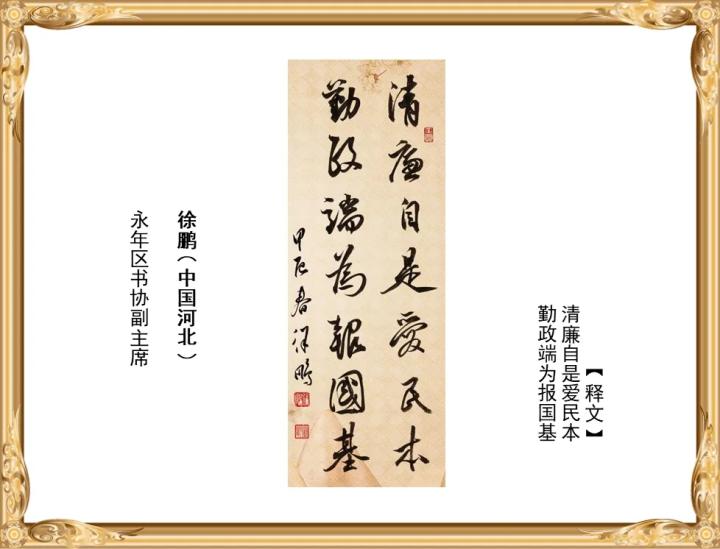 【释文】
清廉自是爱民本
勤政端为报国基
清廉自是愛民本
勤政端為報國基
甲辰春徐鹏
徐鹏（中国河北）
永年区书协副主席